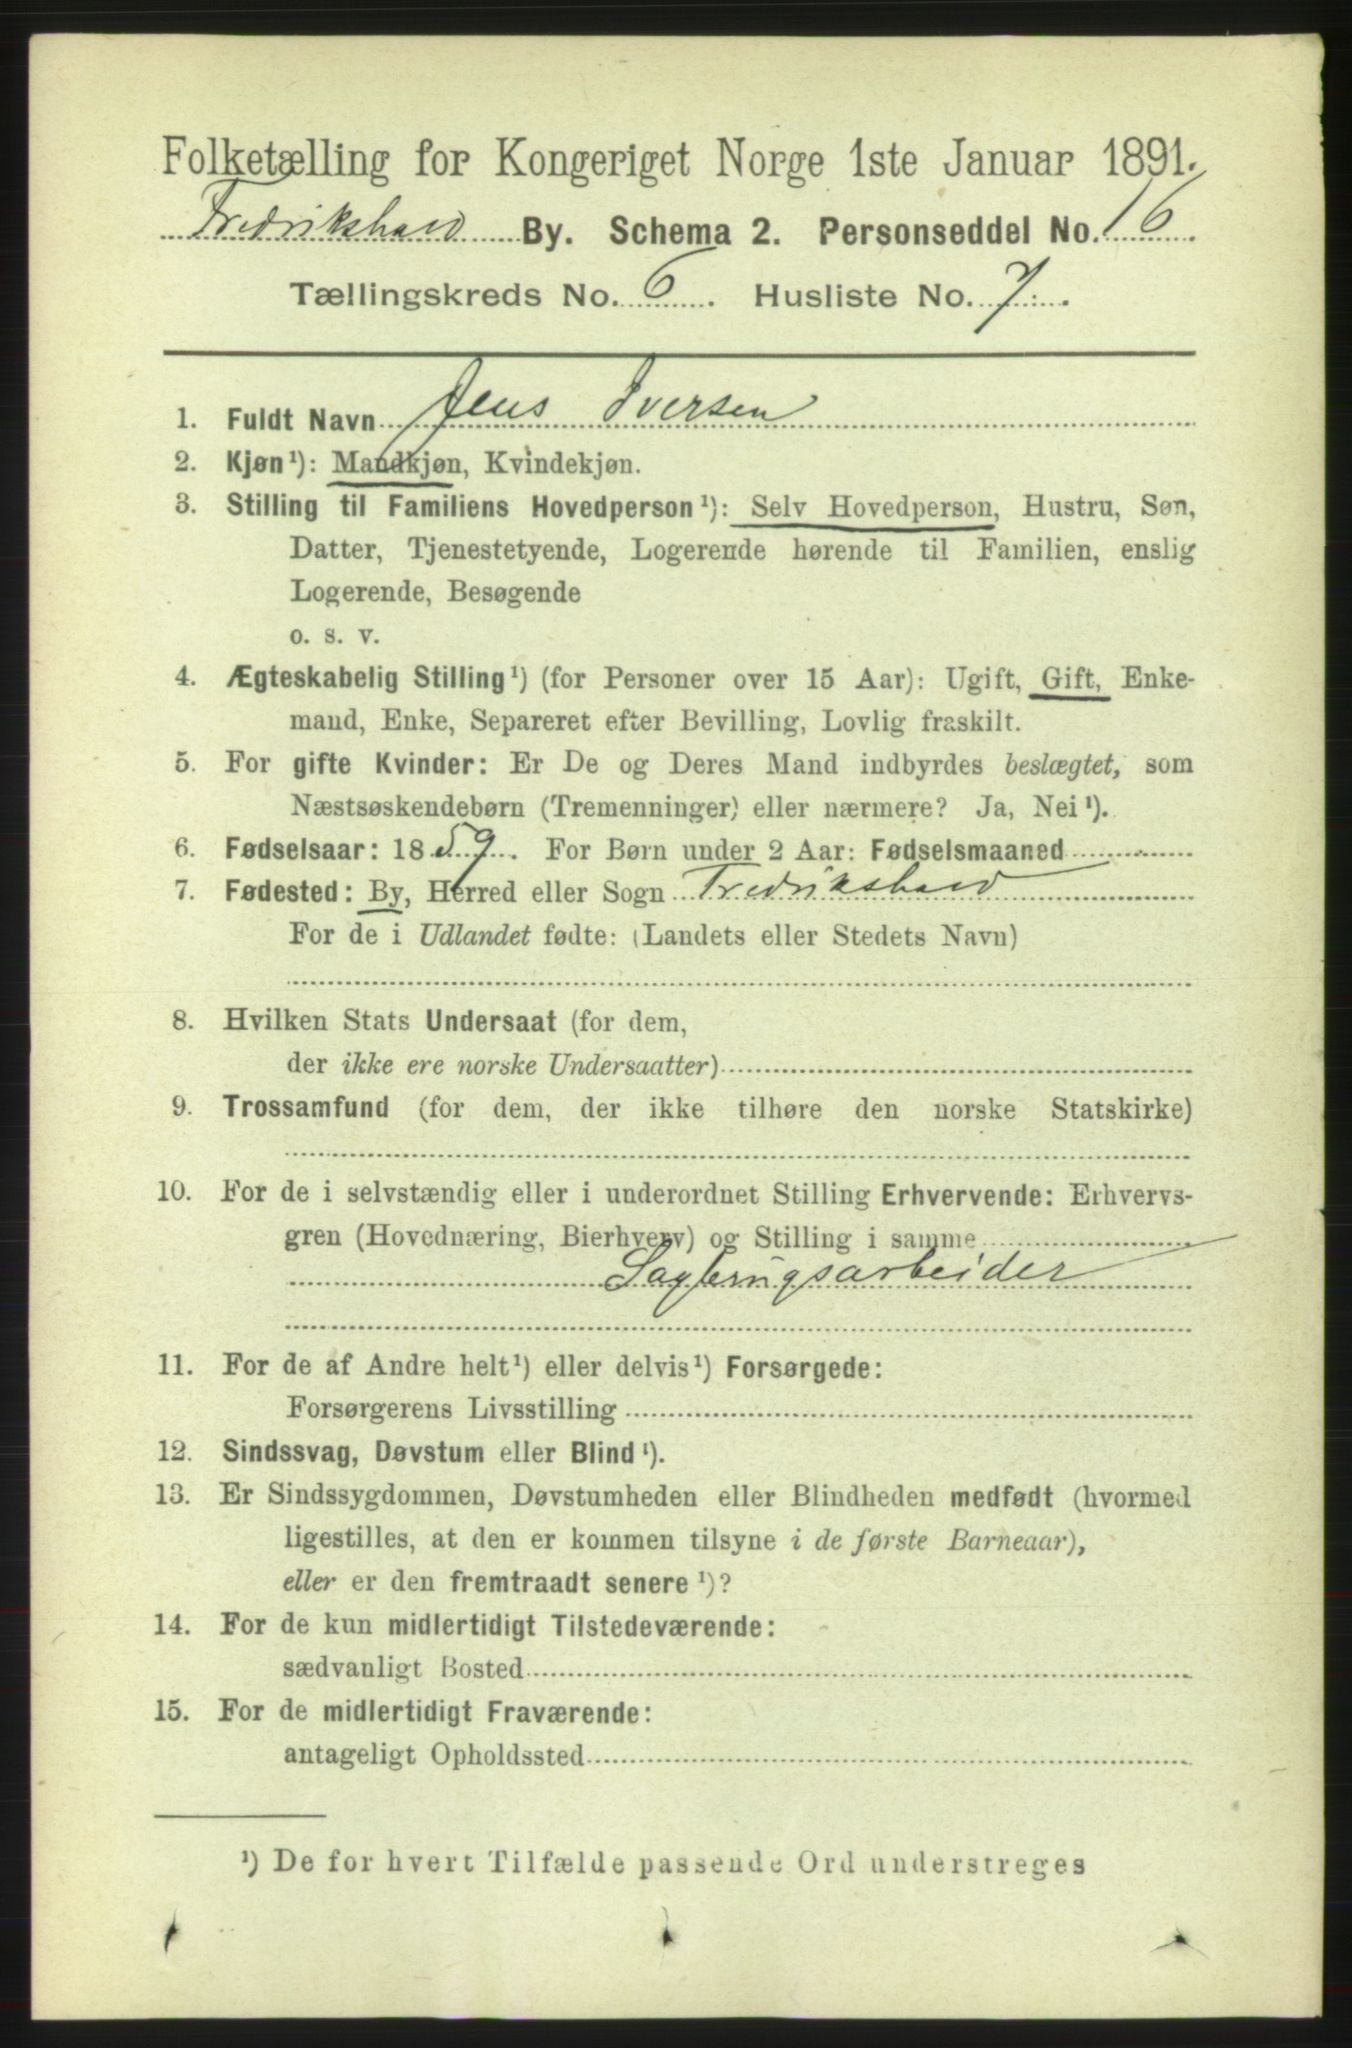 Folketælling for Kongeriget Norge 1ste Januar 1891.
Fredrikshald By. Schema 2. Personseddel No. 16
Tællingskreds No. 6. Husliste No. 7.
1. Fuldt Navn Jens Iversen
2. Kjøn¹): Mandkjøn, Kvindekjøn.
3. Stilling til Familiens Hovedperson¹): Selv Hovedperson, Hustru, Søn,
Datter, Tjenestetyende, Logerende hørende til Familien, enslig
Logerende, Besøgende
o. s. v.
4. Ægteskabelig Stilling¹) (for Personer over 15 Aar): Ugift, Gift, Enke-
mand, Enke, Separeret efter Bevilling, Lovlig fraskilt.
5. For gifte Kvinder: Er De og Deres Mand indbyrdes beslægtet, som
Næstsøskendebørn (Tremenninger) eller nærmere? Ja, Nei¹).
6. Fødselsaar: 1859. For Børn under 2 Aar: Fødselsmaaned
7. Fødested: By, Herred eller Sogn Fredrikshald
For de i Udlandet fødte: (Landets eller Stedets Navn)
8. Hvilken Stats Undersaat (for dem,
der ikke ere norske Undersaatter)
9. Trossamfund (for dem, der ikke tilhøre den norske Statskirke)
10. For de i selvstændig eller i underordnet Stilling Erhvervende: Erhvervs-
gren (Hovednæring, Bierhverv) og Stilling i samme
Sagbrugsarbeider
11. For de af Andre helt¹) eller delvis¹) Forsørgede:
Forsørgerens Livsstilling
12. Sindssvag, Døvstum eller Blind¹).
13. Er Sindssygdommen, Døvstumheden eller Blindheden medfødt (hvormed
ligestilles, at den er kommen tilsyne i de første Barneaar),
eller er den fremtraadt senere¹)?
14. For de kun midlertidigt Tilstedeværende:
sædvanligt Bosted
15. For de midlertidigt Fraværende:
antageligt Opholdssted
¹) De for hvert Tilfælde passende Ord understreges